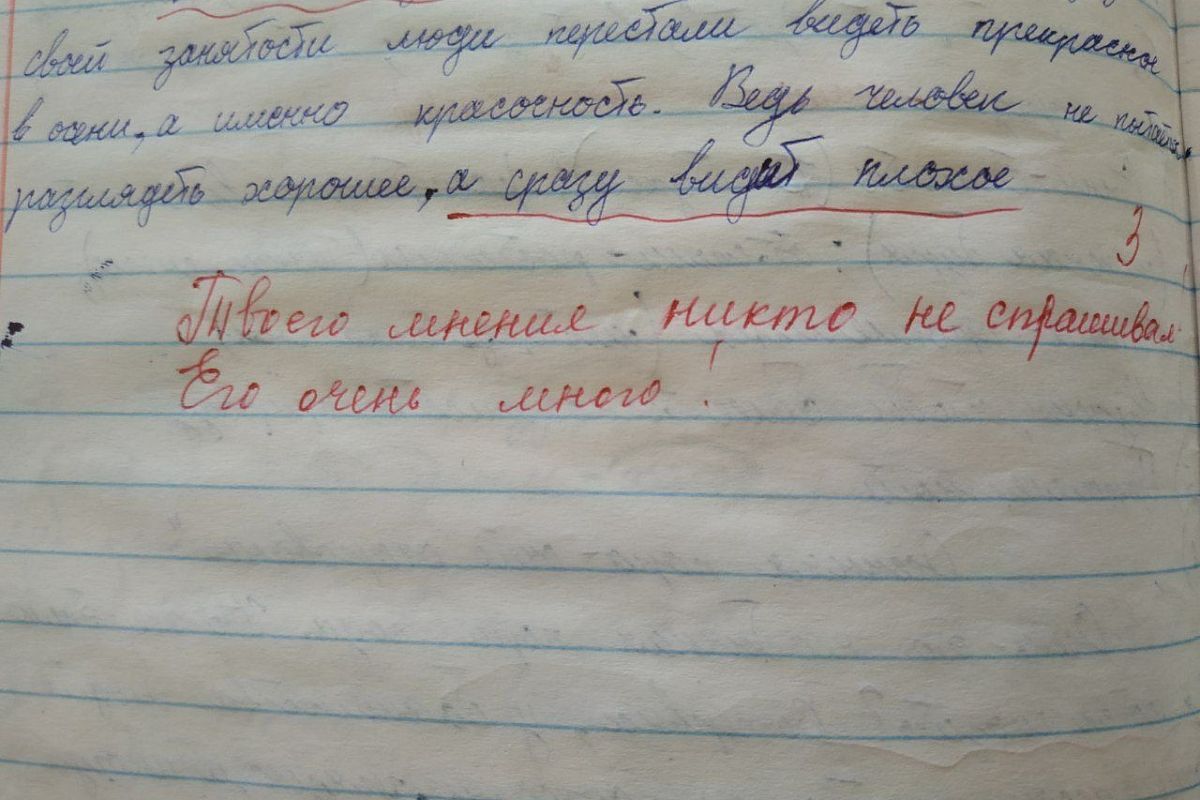 своей занятости люди перестали видеть прекрасное
в осени, а именно красочность. Ведь человек не пытается
разглядеть хорошее, а сразу видит плохое
3
Твоего мнения никто не спрашивал
Его очень много!